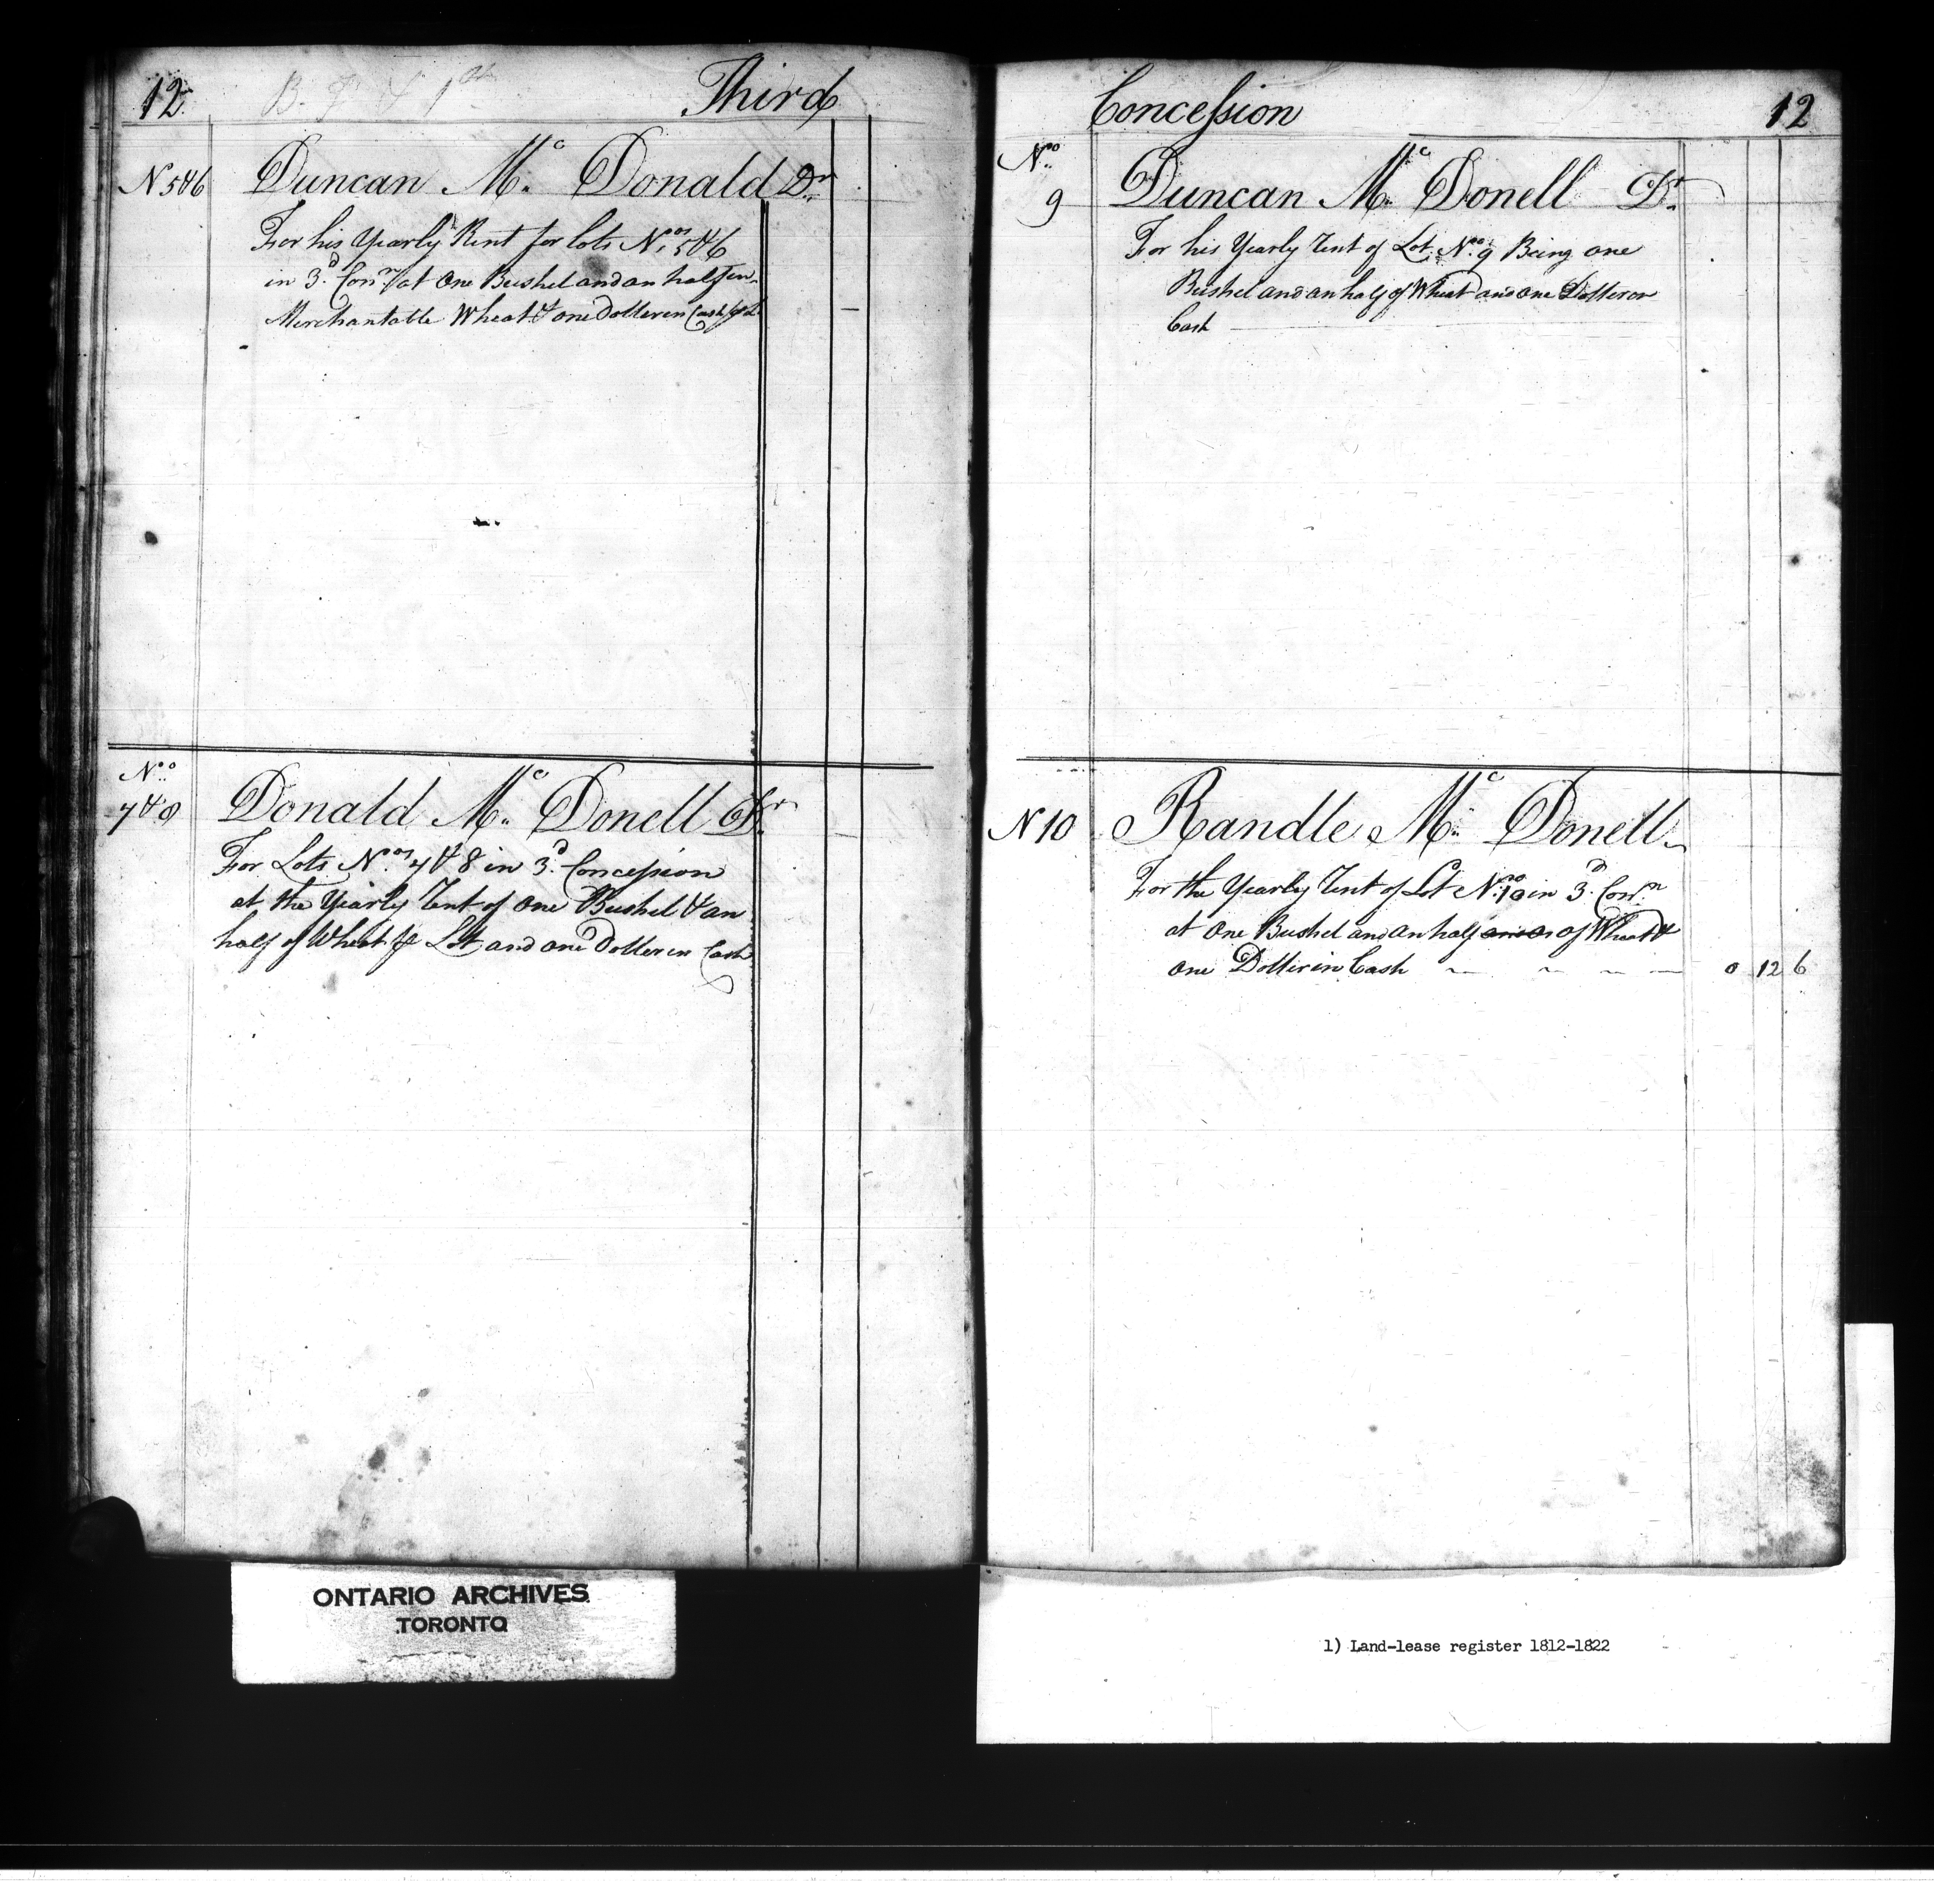 12 Third
N 5 & 6 Duncan Mc. Donald Dr
For his Yearly Rent for lots Nos. 5 & 6
in 3d. Conn. at One Bushel and an half in
Merchantable Wheat & one Doller in Cash
No.
7 & 8 Donald Mc. Donell Dr.
For Lots Nos. 7 & 8 in 3d. Concession
at the Yearly Rent of One Bushel & an
half of Wheat ⅌ Lot and one Doller in Cash
Concession 12
No.
9 Duncan Mc. Donell Dr.
For his Yearly Rent of Lot No. 9 Being one
Bushel and an half of Wheat and one Doller
Cash
N 10 Randle Mc. Donell
For the Yearly Rent of Lot No. 10 in 3d. Conn.
at One Bushel and an half of Wheat &
one Doller in Cash 0 12 6
ONTARIO ARCHIVES
TORONTO
1) Land-lease register 1812-1822